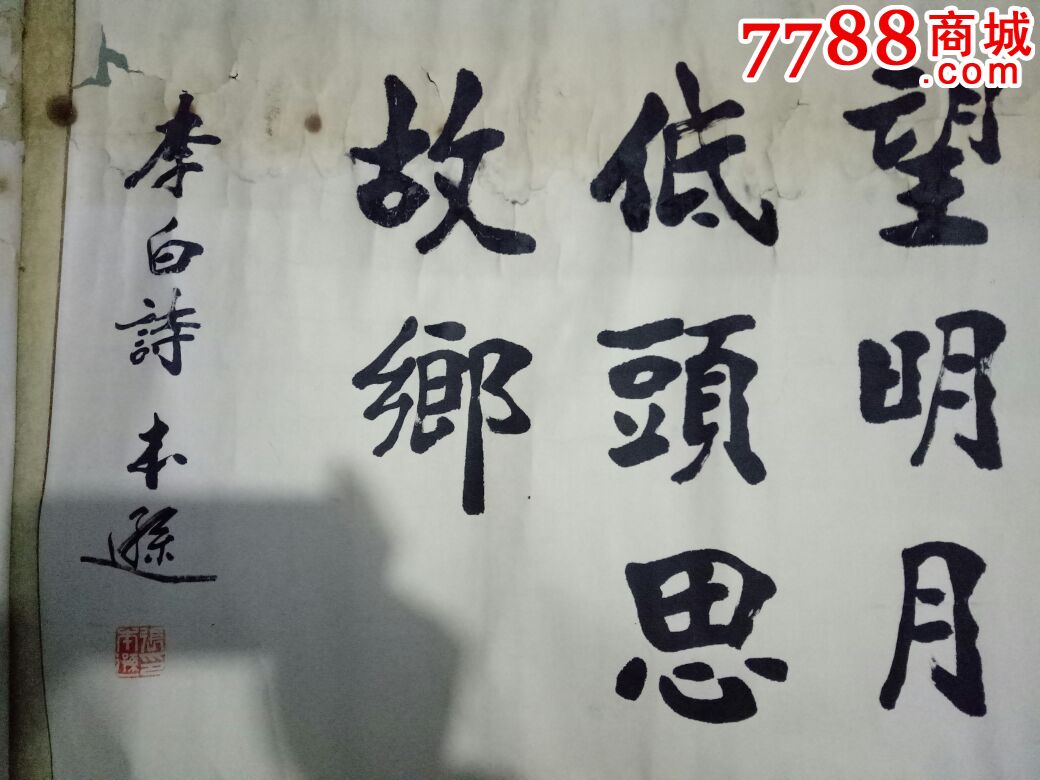 7788商城
.com
望明月
低頭思
故鄉
李白詩 本遜